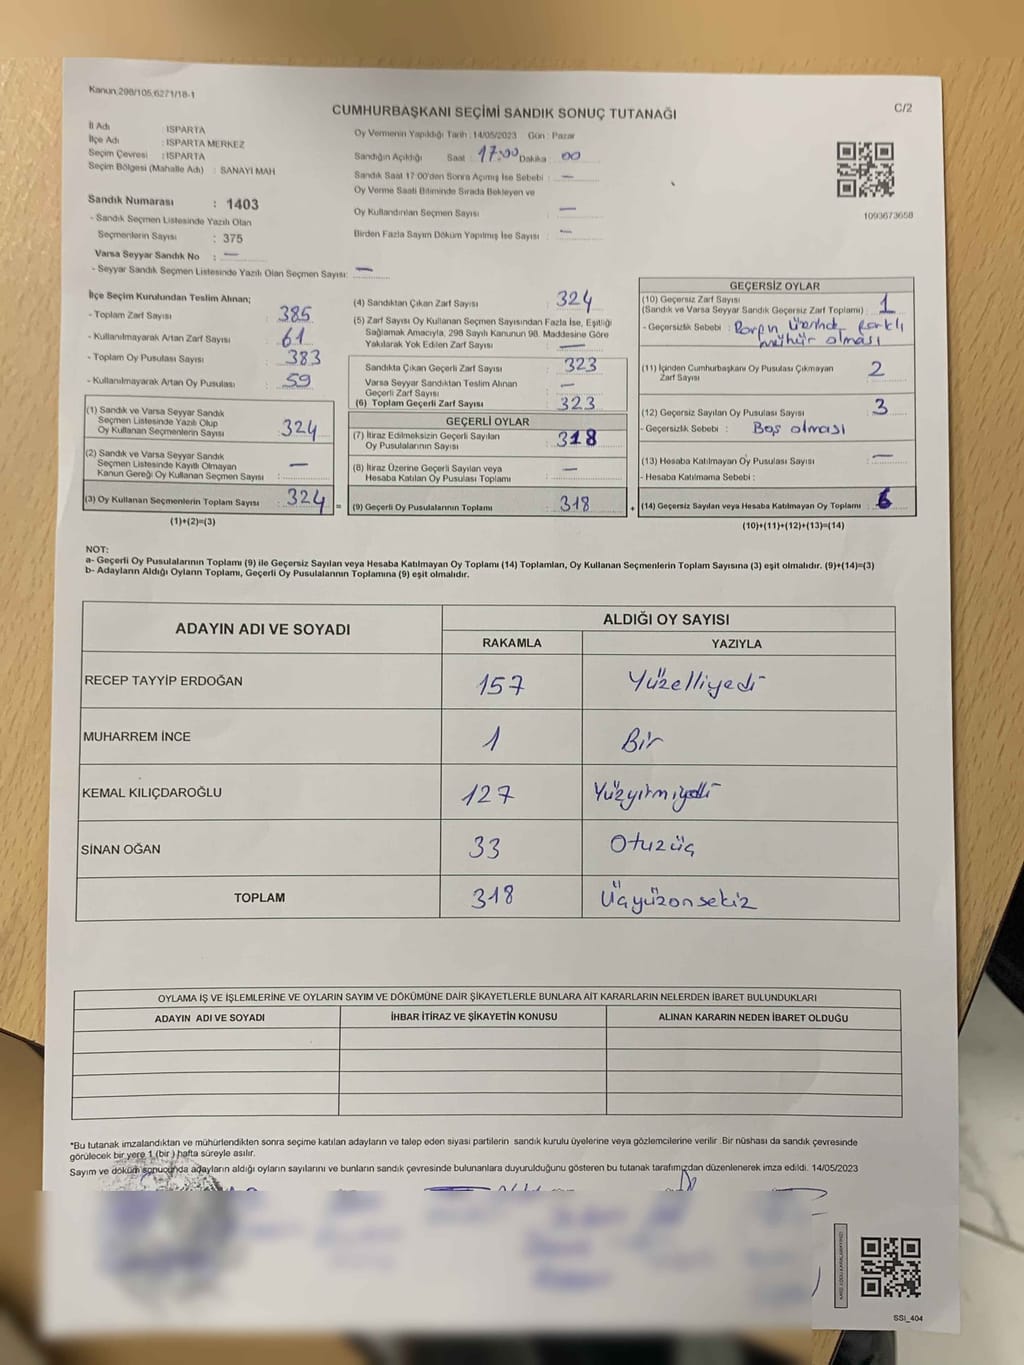 Kanun.298/105,6271/18-1
C/2
CUMHURBAŞKANI SEÇİMİ SANDIK SONUÇ TUTANAĞI
İl Adı : ISPARTA
İlçe Adı : ISPARTA MERKEZ
Seçim Çevresi : ISPARTA
Seçim Bölgesi (Mahalle Adı) : SANAYİ MAH
Sandık Numarası : 1403
- Sandık Seçmen Listesinde Yazılı Olan
Seçmenlerin Sayısı : 375
Varsa Seyyar Sandık No : —
- Seyyar Sandık Seçmen Listesinde Yazılı Olan Seçmen Sayısı: —
Oy Vermenin Yapıldığı Tarih : 14/05/2023 Gün : Pazar
Sandığın Açıldığı Saat : 17:00 Dakika 00
Sandık Saat 17:00'den Sonra Açımış İse Sebebi : —
Oy Verme Saati Bitiminde Sırada Bekleyen ve
Oy Kullandırılan Seçmen Sayısı —
Birden Fazla Sayım Döküm Yapılmış İse Sayısı : —
1093673658
İlçe Seçim Kurulundan Teslim Alınan;
- Toplam Zarf Sayısı : 385
- Kullanılmayarak Artan Zarf Sayısı : 61
- Toplam Oy Pusulası Sayısı : 383
- Kullanılmayarak Artan Oy Pusulası : 59
(1) Sandık ve Varsa Seyyar Sandık
Seçmen Listesinde Yazılı Olup
Oy Kullanan Seçmenlerin Sayısı : 324
(2) Sandık ve Varsa Seyyar Sandık
Seçmen Listesinde Kayıtlı Olmayan
Kanun Gereği Oy Kullanan Seçmen Sayısı : —
(3) Oy Kullanan Seçmenlerin Toplam Sayısı : 324 =
(1)+(2)=(3)
(4) Sandıktan Çıkan Zarf Sayısı : 324
(5) Zarf Sayısı Oy Kullanan Seçmen Sayısından Fazla İse, Eşitliği
Sağlamak Amacıyla, 298 Sayılı Kanunun 98. Maddesine Göre
Yakılarak Yok Edilen Zarf Sayısı : —
Sandıkta Çıkan Geçerli Zarf Sayısı : 323
Varsa Seyyar Sandıktan Teslim Alınan
Geçerli Zarf Sayısı : —
(6) Toplam Geçerli Zarf Sayısı : 323
GEÇERLİ OYLAR
(7) İtiraz Edilmeksizin Geçerli Sayılan
Oy Pusulalarının Sayısı : 318
(8) İtiraz Üzerine Geçerli Sayılan veya
Hesaba Katılan Oy Pusulası Toplamı : —
(9) Geçerli Oy Pusulalarının Toplamı : 318 +
GEÇERSİZ OYLAR
(10) Geçersiz Zarf Sayısı
(Sandık ve Varsa Seyyar Sandık Geçersiz Zarf Toplamı) : 1
- Geçersizlik Sebebi : üzerinde farklı
mühür olması
(11) İçinden Cumhurbaşkanı Oy Pusulası Çıkmayan
Zarf Sayısı : 2
(12) Geçersiz Sayılan Oy Pusulası Sayısı : 3
- Geçersizlik Sebebi : Boş olması
(13) Hesaba Katılmayan Oy Pusulası Sayısı : —
- Hesaba Katılmama Sebebi :
(14) Geçersiz Sayılan veya Hesaba Katılmayan Oy Toplamı : 6
(10)+(11)+(12)+(13)=(14)
NOT:
a- Geçerli Oy Pusulalarının Toplamı (9) ile Geçersiz Sayılan veya Hesaba Katılmayan Oy Toplamı (14) Toplamları, Oy Kullanan Seçmenlerin Toplam Sayısına (3) eşit olmalıdır. (9)+(14)=(3)
b- Adayların Aldığı Oyların Toplamı, Geçerli Oy Pusulalarının Toplamına (9) eşit olmalıdır.
ADAYIN ADI VE SOYADI
ALDIĞI OY SAYISI
RAKAMLA YAZIYLA
RECEP TAYYİP ERDOĞAN 157 Yüzelliyedi
MUHARREM İNCE 1 Bir
KEMAL KILIÇDAROĞLU 127 Yüzyirmiyedi
SİNAN OĞAN 33 Otuzüç
TOPLAM 318 Üçyüzonsekiz
OYLAMA İŞ VE İŞLEMLERİNE VE OYLARIN SAYIM VE DÖKÜMÜNE DAİR ŞİKAYETLERLE BUNLARA AİT KARARLARIN NELERDEN İBARET BULUNDUKLARI
ADAYIN ADI VE SOYADI İHBAR İTİRAZ VE ŞİKAYETİN KONUSU ALINAN KARARIN NEDEN İBARET OLDUĞU
*Bu tutanak imzalandıktan ve mühürlendikten sonra seçime katılan adayların ve talep eden siyasi partilerin sandık kurulu üyelerine veya gözlemcilerine verilir .Bir nüshası da sandık çevresinde
görülecek bir yere 1 (bir ) hafta süreyle asılır.
Sayım ve döküm sonucunda adayların aldığı oyların sayılarını ve bunların sandık çevresinde bulunanlara duyurulduğunu gösteren bu tutanak tarafımızdan düzenlenerek imza edildi. 14/05/2023
SSI_404